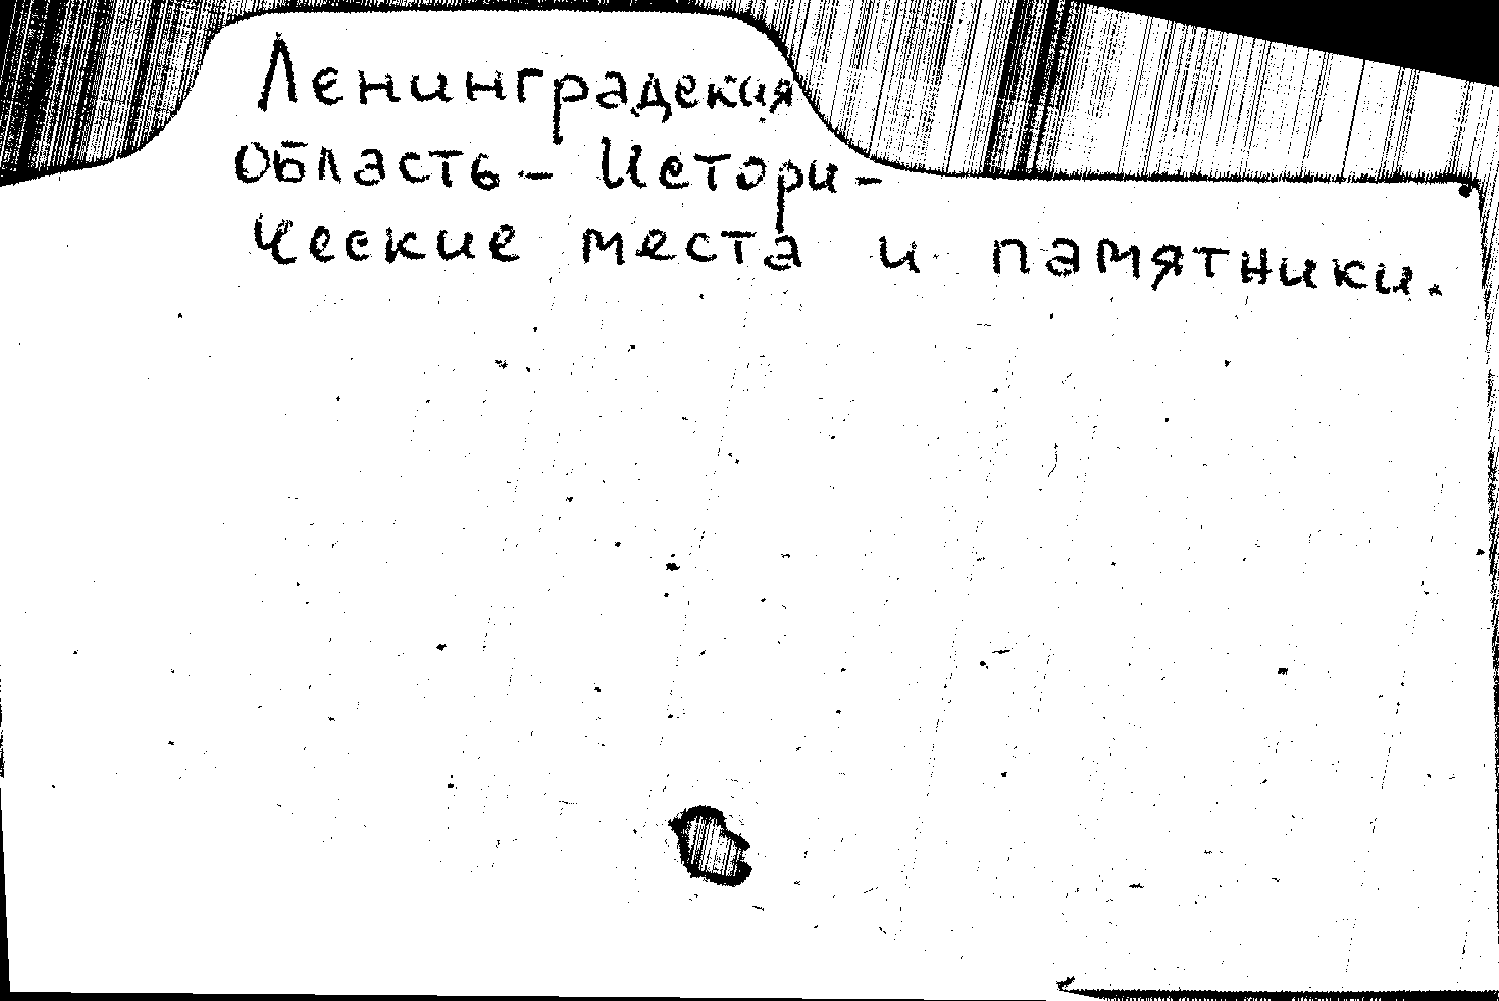 Ленинградская
область - Истори-
ческие места и памятники.